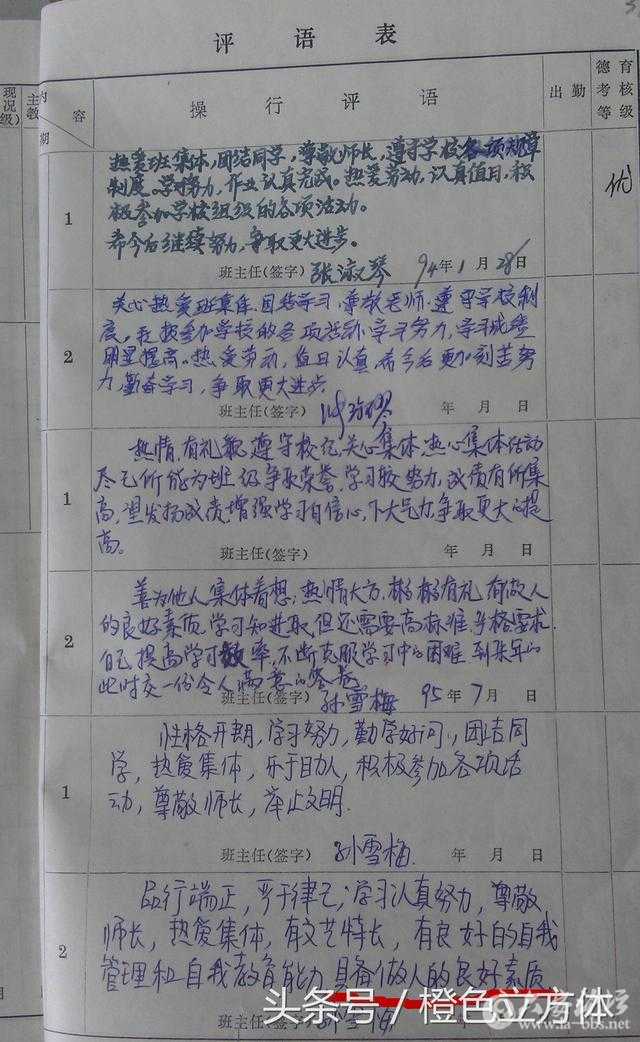 评语表
内容
期
操行评语
出勤
德育考核等级
现况
级)
主
教
1
热爱班集体,团结同学,尊敬师长,遵守学校各项规章
制度。学习努力,作业认真完成。热爱劳动,认真值日,积
极参加学校组织的各项活动。
希今后继续努力,争取更大进步。
优
班主任(签字) 张淑琴 94年1月28日
2
关心热爱班集体,团结学习,尊敬老师,遵守学校制
度。积极参加学校的各项活动,学习努力,学习成绩
明显提高。热爱劳动,值日认真,希今后更加刻苦努
力,勤奋学习,争取更大进步
班主任(签字) 年 月 日
1
热情,有礼貌,遵守校纪,关心集体,热心集体活动
尽己所能为班级争取荣誉,学习较努力,成绩有所集
高,望发扬成绩,增强学习自信心,下大气力,争取更大的提
高。
班主任(签字) 年 月 日
2
善为他人集体着想;热情大方,彬彬有礼,有做人
的良好素质,学习知进取,但还需要高标准,严格要求
自己,提高学习效率,不断克服学习中的困难,到来年的
此时交一份令人满意的答卷
孙雪梅 95年7月 日
班主任(签字)
1
性格开朗,学习努力,勤学好问,团结同
学,热爱集体,乐于助人,积极参加各项活
动,尊敬师长,举止文明.
班主任(签字) 孙雪梅. 年 月 日
2
品行端正,严于律己;学习认真努力,尊敬
师长,热爱集体,有文艺特长,有良好的自我
管理和自我教育能力,具备做人的良好素质
头条号/橙色立方体
班主任(签
www.la-bbs.net